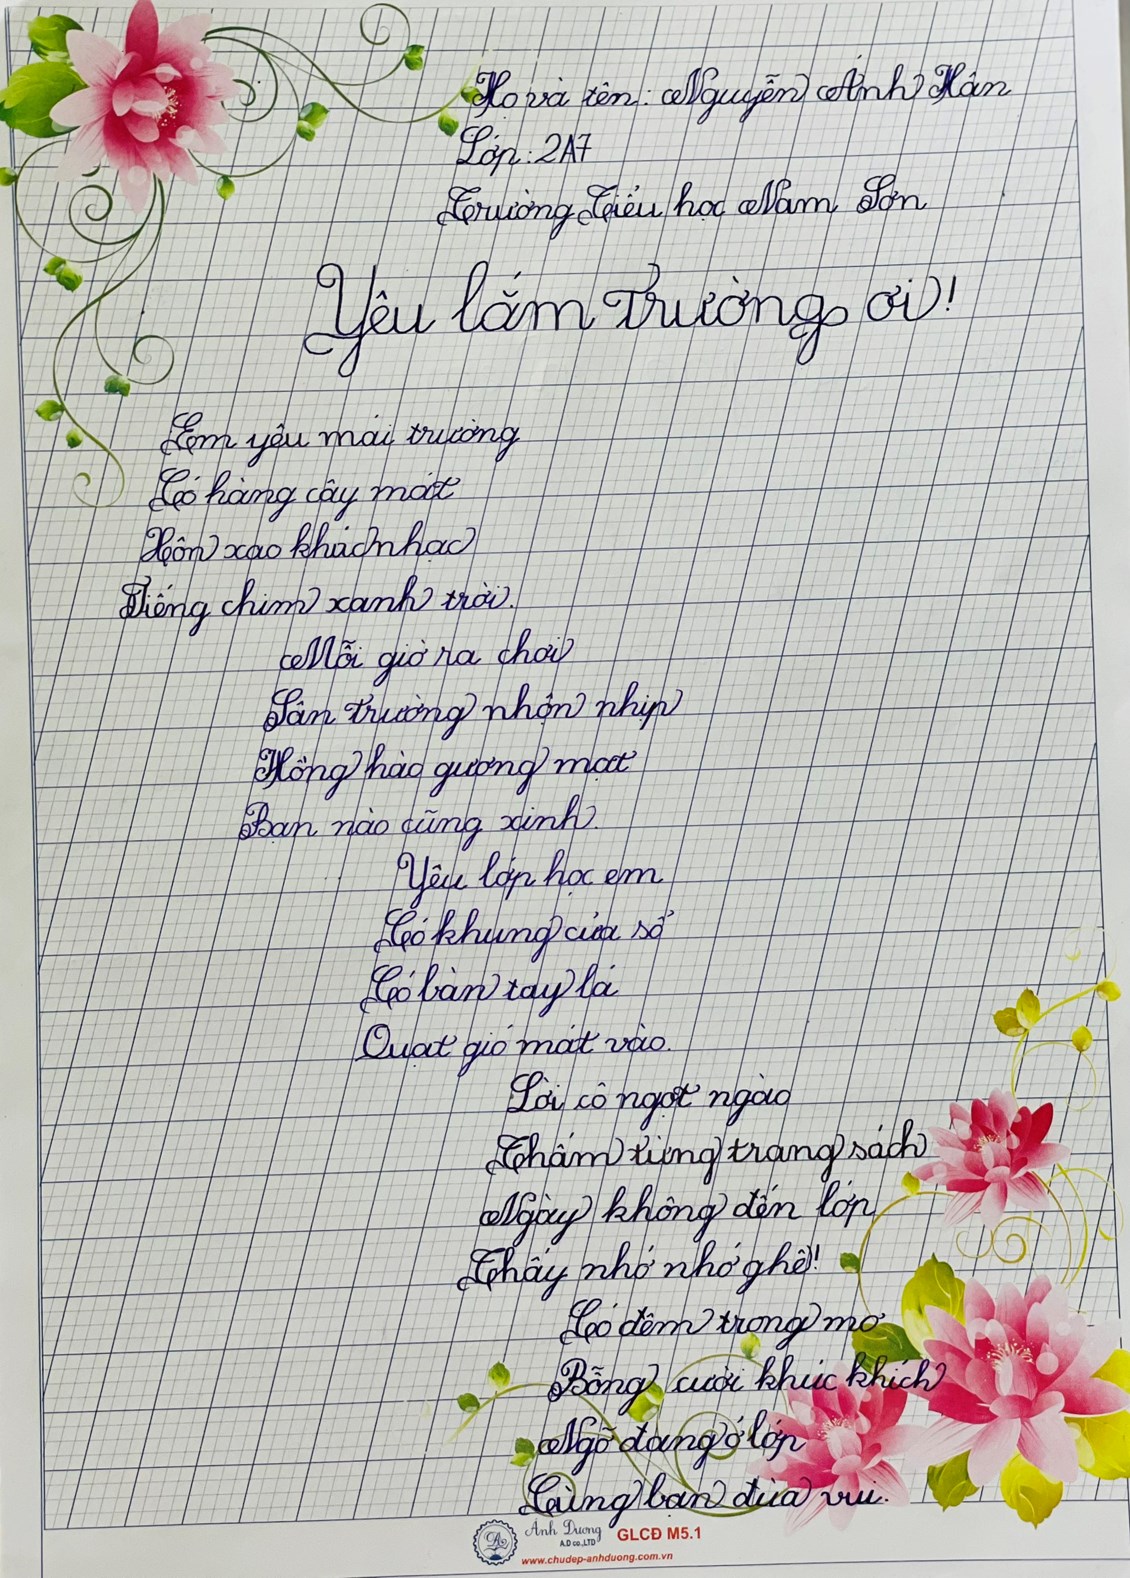 Họ và tên: Nguyễn Ánh Hân
Lớp: 2A7
Trường Tiểu học Nam Sơn
Yêu lắm trường ơi!
Em yêu mái trường
Có hàng cây mát
Xôn xao khúc nhạc
Tiếng chim xanh trời.
Mỗi giờ ra chơi
Sân trường nhộn nhịp
Hồng hào gương mặt
Bạn nào cũng xinh.
Yêu lớp học em
Có khung cửa sổ
Có bàn tay lá
Quạt gió mát vào.
Lời cô ngọt ngào
Thấm từng trang sách
Ngày không đến lớp
Thấy nhớ nhớ ghê!
Có đêm trong mơ
Bỗng cười khúc khích
Ngỡ đang ở lớp
Cùng bạn đùa vui.
Ánh Dương GLCĐ M5.1
A.D co.,LTD
www.chudep-anhduong.com.vn